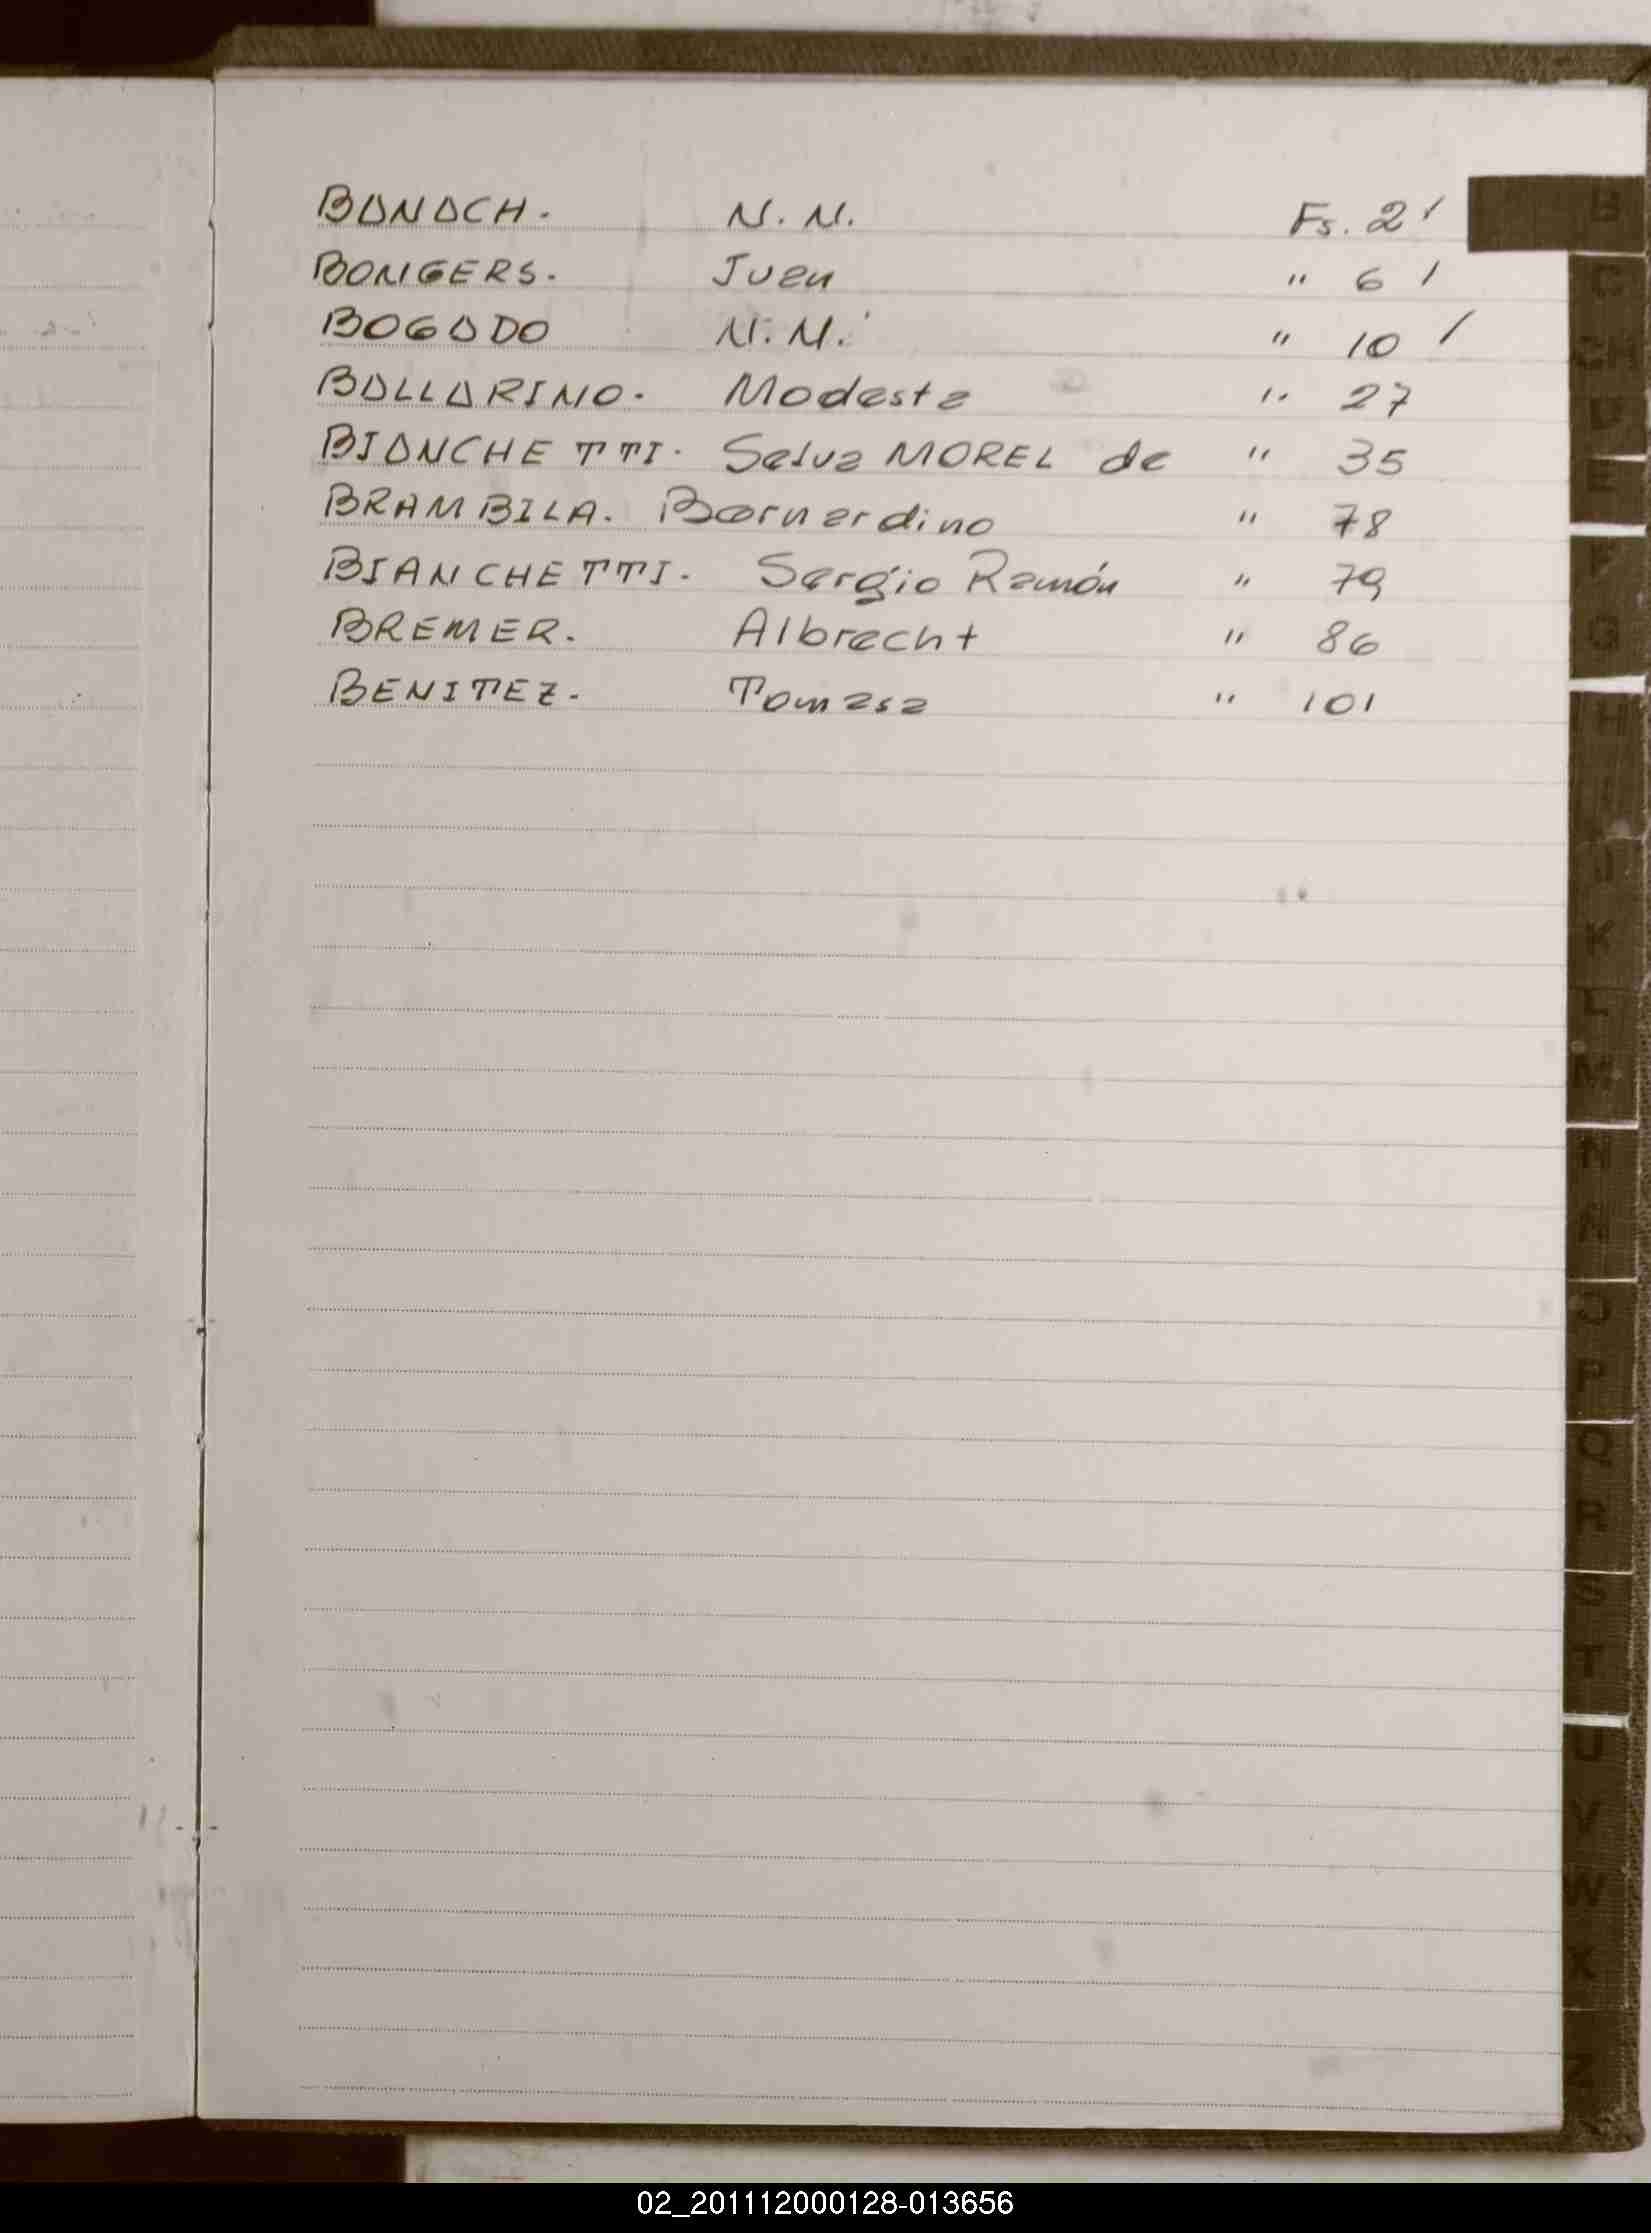 BANACH. N.N. Fs. 2 /
BONGERS. Juan " 6 /
BOGADO N.N. " 10 /
BALLARINO. Modesta " 27
BIANCHETTI. Selva MOREL de " 35
BRAMBILA. Bernardino " 78
BIANCHETTI. Sergio Ramón " 79
BREMER. Albrecht " 86
BENITEZ. Tomasa " 101
B
C
D
E
F
G
H
I
J
K
L
M
N
Ñ
O
P
Q
R
S
T
U
V
W
X
Z
02_201112000128-013656